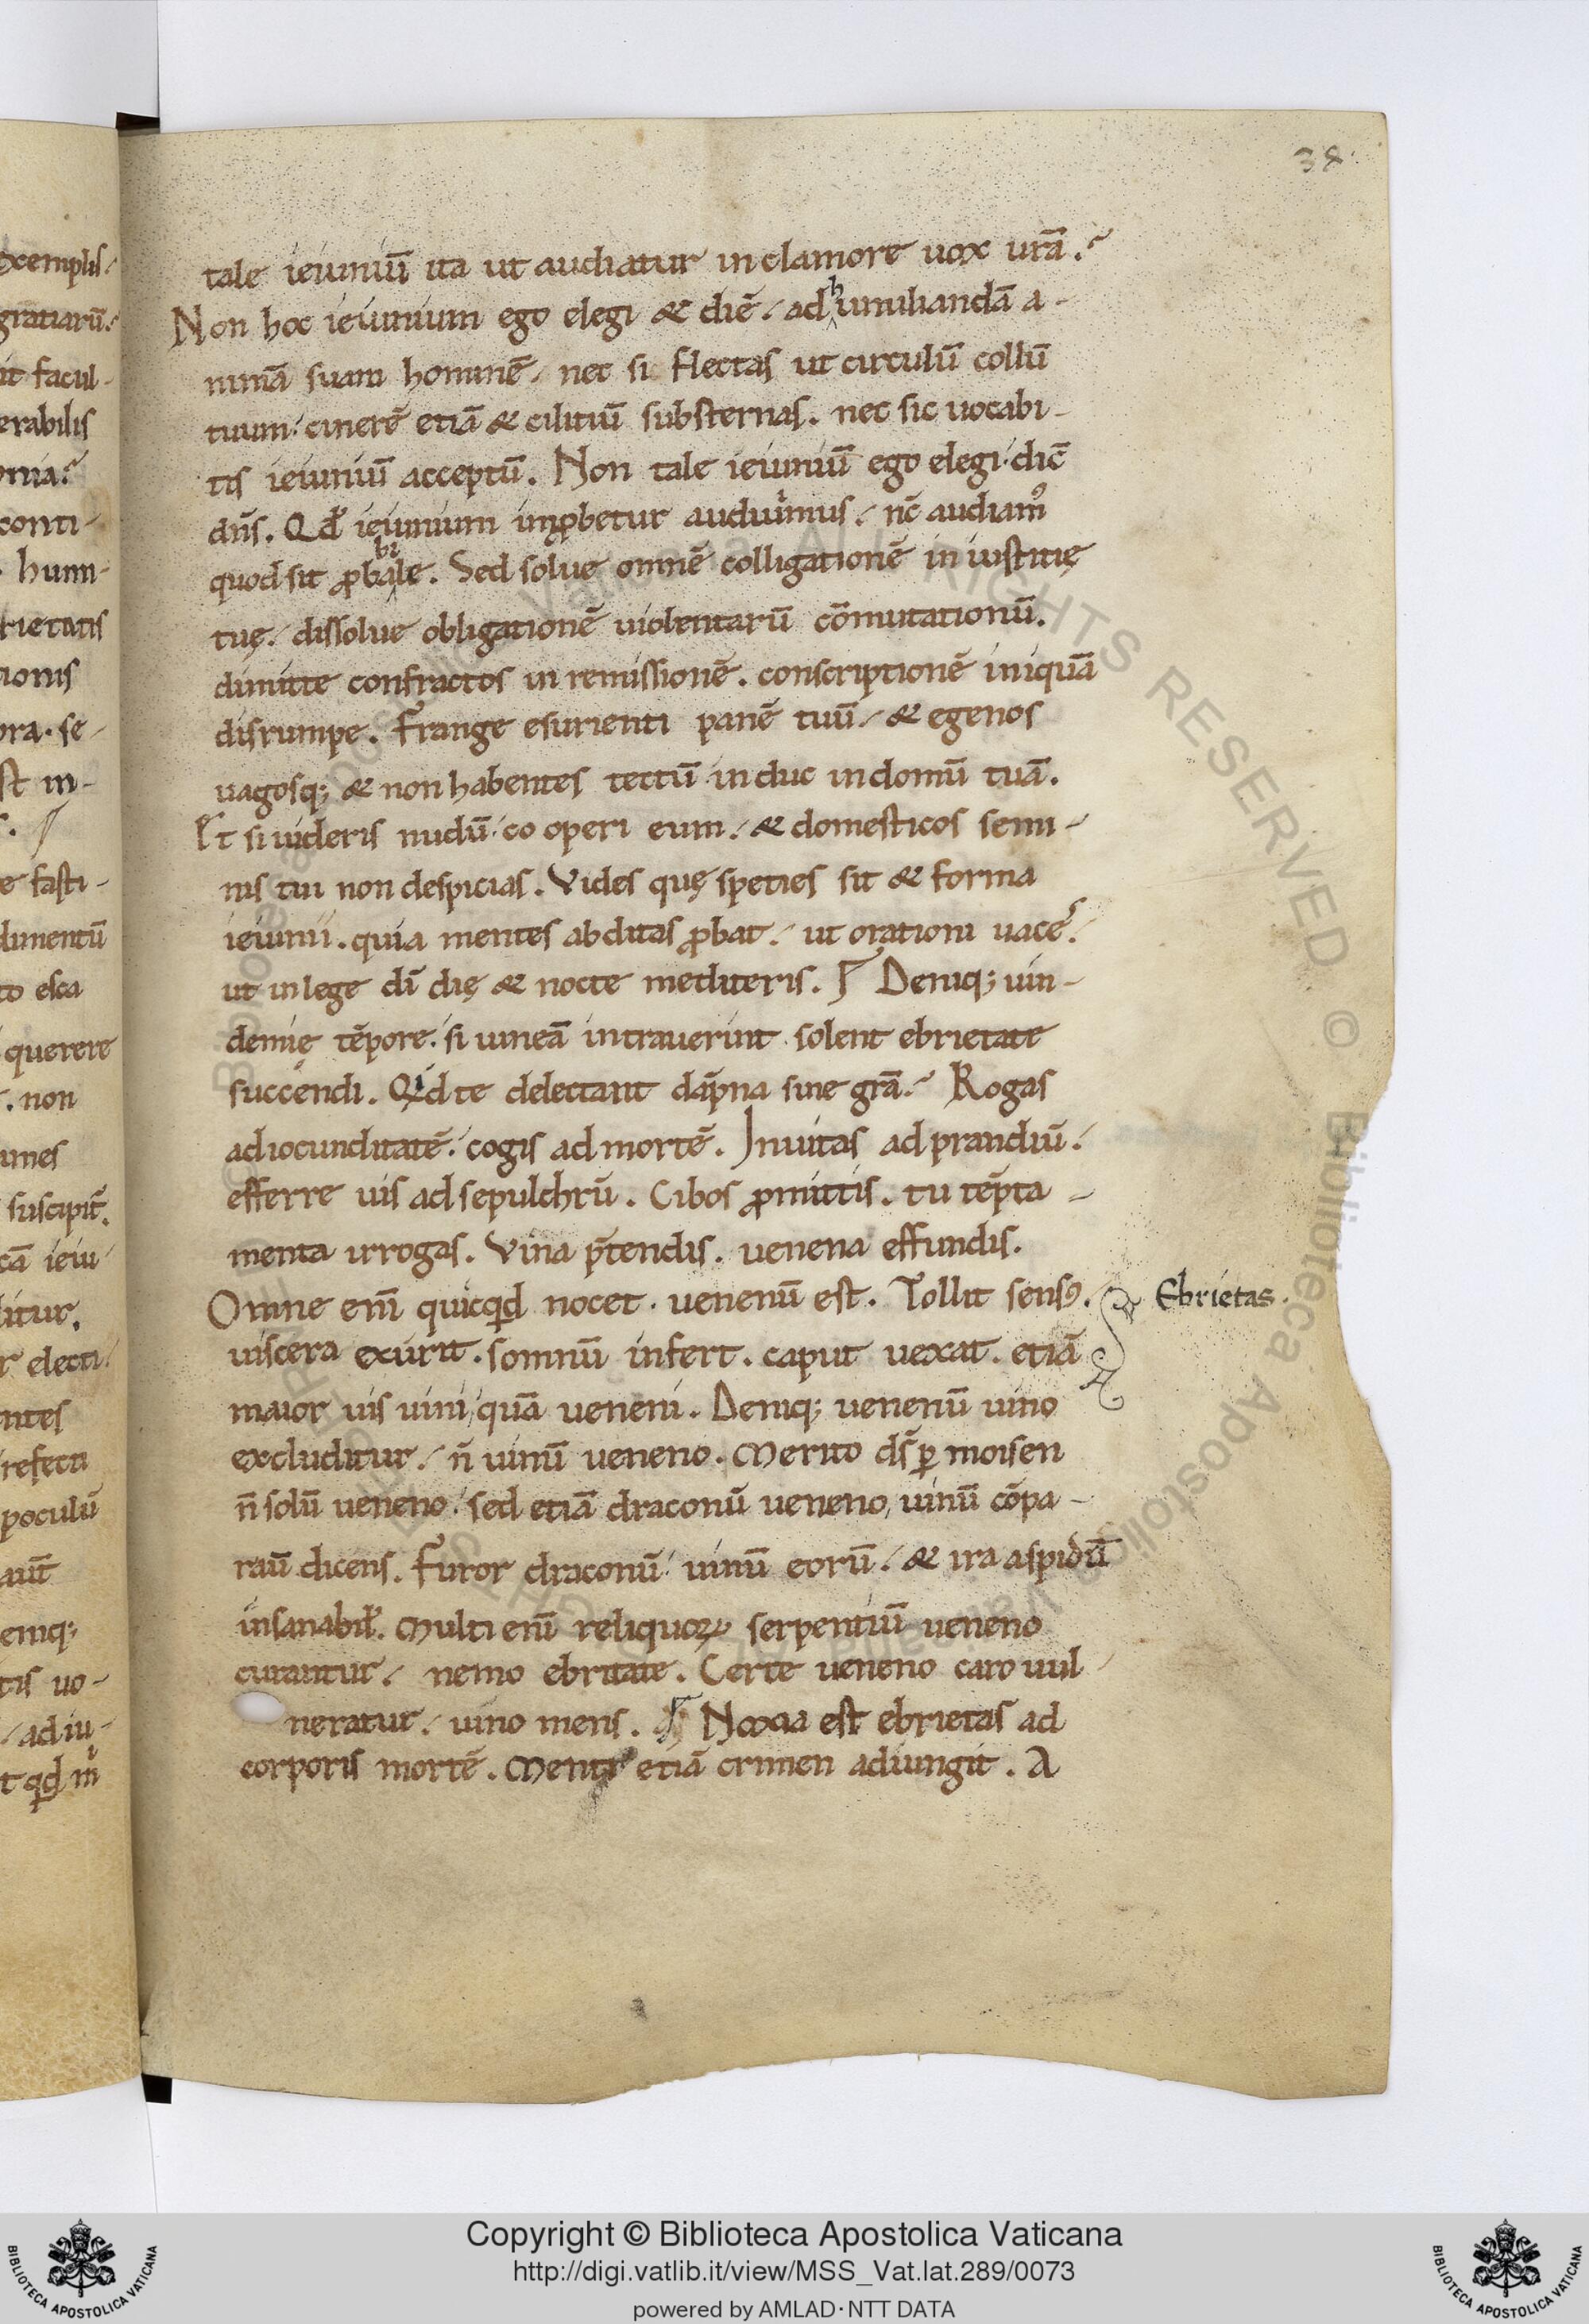 38
tale ieiuniū ita ut audiatur in clamore uox urā?
Non hoc ieiunium ego elegi & diē. ad humiliandā a-
nimā suam hominē. nec si flectas ut circulū collū
tuum. cinerē etiā & cilitiū substernas. nec sic uocabi-
tis ieiuniū acceptū. Non tale ieiuniū ego elegi. dic̄
dn̄s. Qđ ieiunium inꝓbetur audiuimus. nc̄ audiamꝰ
quod sit ꝓbabile. Sed solue omnē colligationē iniustitię
tuę. dissolue obligationē uiolentarū cōmutationū.
dimitte confractos in remissionē. conscriptionē iniquā
disrumpe. Frange esurienti panē tuū. & egenos
uagosq; & non habentes tectū induc in domū tuā.
Et si uideris nudū. cooperi eum. & domesticos semi-
nis tui non despicias. Vides quę speties sit & forma
ieiunii. quia mentes abditas ꝓbat. ut orationi uaces.
ut in lege dī die & nocte mediteris. Deniq; uin-
demię tēpore. si uineā intrauerint solent ebrietate
succendi. Qid te delectant dāpna sine grā? Rogas
ad iocunditatē. cogis ad mortē. Inuitas ad prandiū.
efferre uis ad sepulchrū. Cibos ꝓmittis. tu tēpta-
menta irrogas. Vina p̄tendis. uenena effundis.
Omne enī quicqd nocet. uenenū est. Tollit sensꝰ.
Ebrietas.
uiscera exurit. somnū infert. caput uexat. etiā
maior uis uini, quā ueneni. Deniq; uenenū uino
excluditur. n̄ uinū ueneno. Merito ds̄ ꝑ moisen
n̄ solū ueneno. sed etiā draconū ueneno, uinū cōpa-
rauit̄ dicens. Furor draconū uinū eorū. & ira aspidū
insanabił. Multi enī reliquoꝝ serpentiū ueneno
curantur. nemo ebritate. Certe ueneno caro uul-
neratur. uino mens. Noxia est ebrietas ad
corporis mortē. Menti etiā crimen adiungit. A
exemplis.
gratiarū.
it facul-
erabilis
onia?
conti-
humi-
rietatis
tionis
ora. se-
st in-
e fasti-
dimentū
to esca
querere
. non
suscipit̄.
cā ieiu-
litur.
r electi.
ntes
refecta
poculū
aut̄
eniq;
tis uo-
adiu-
Copyright © Biblioteca Apostolica Vaticana
http://digi.vatlib.it/view/MSS_Vat.lat.289/0073
powered by AMLAD·NTT DATA
BIBLIOTECA APOSTOLICA VATICANA
BIBLIOTECA APOSTOLICA VATICANA